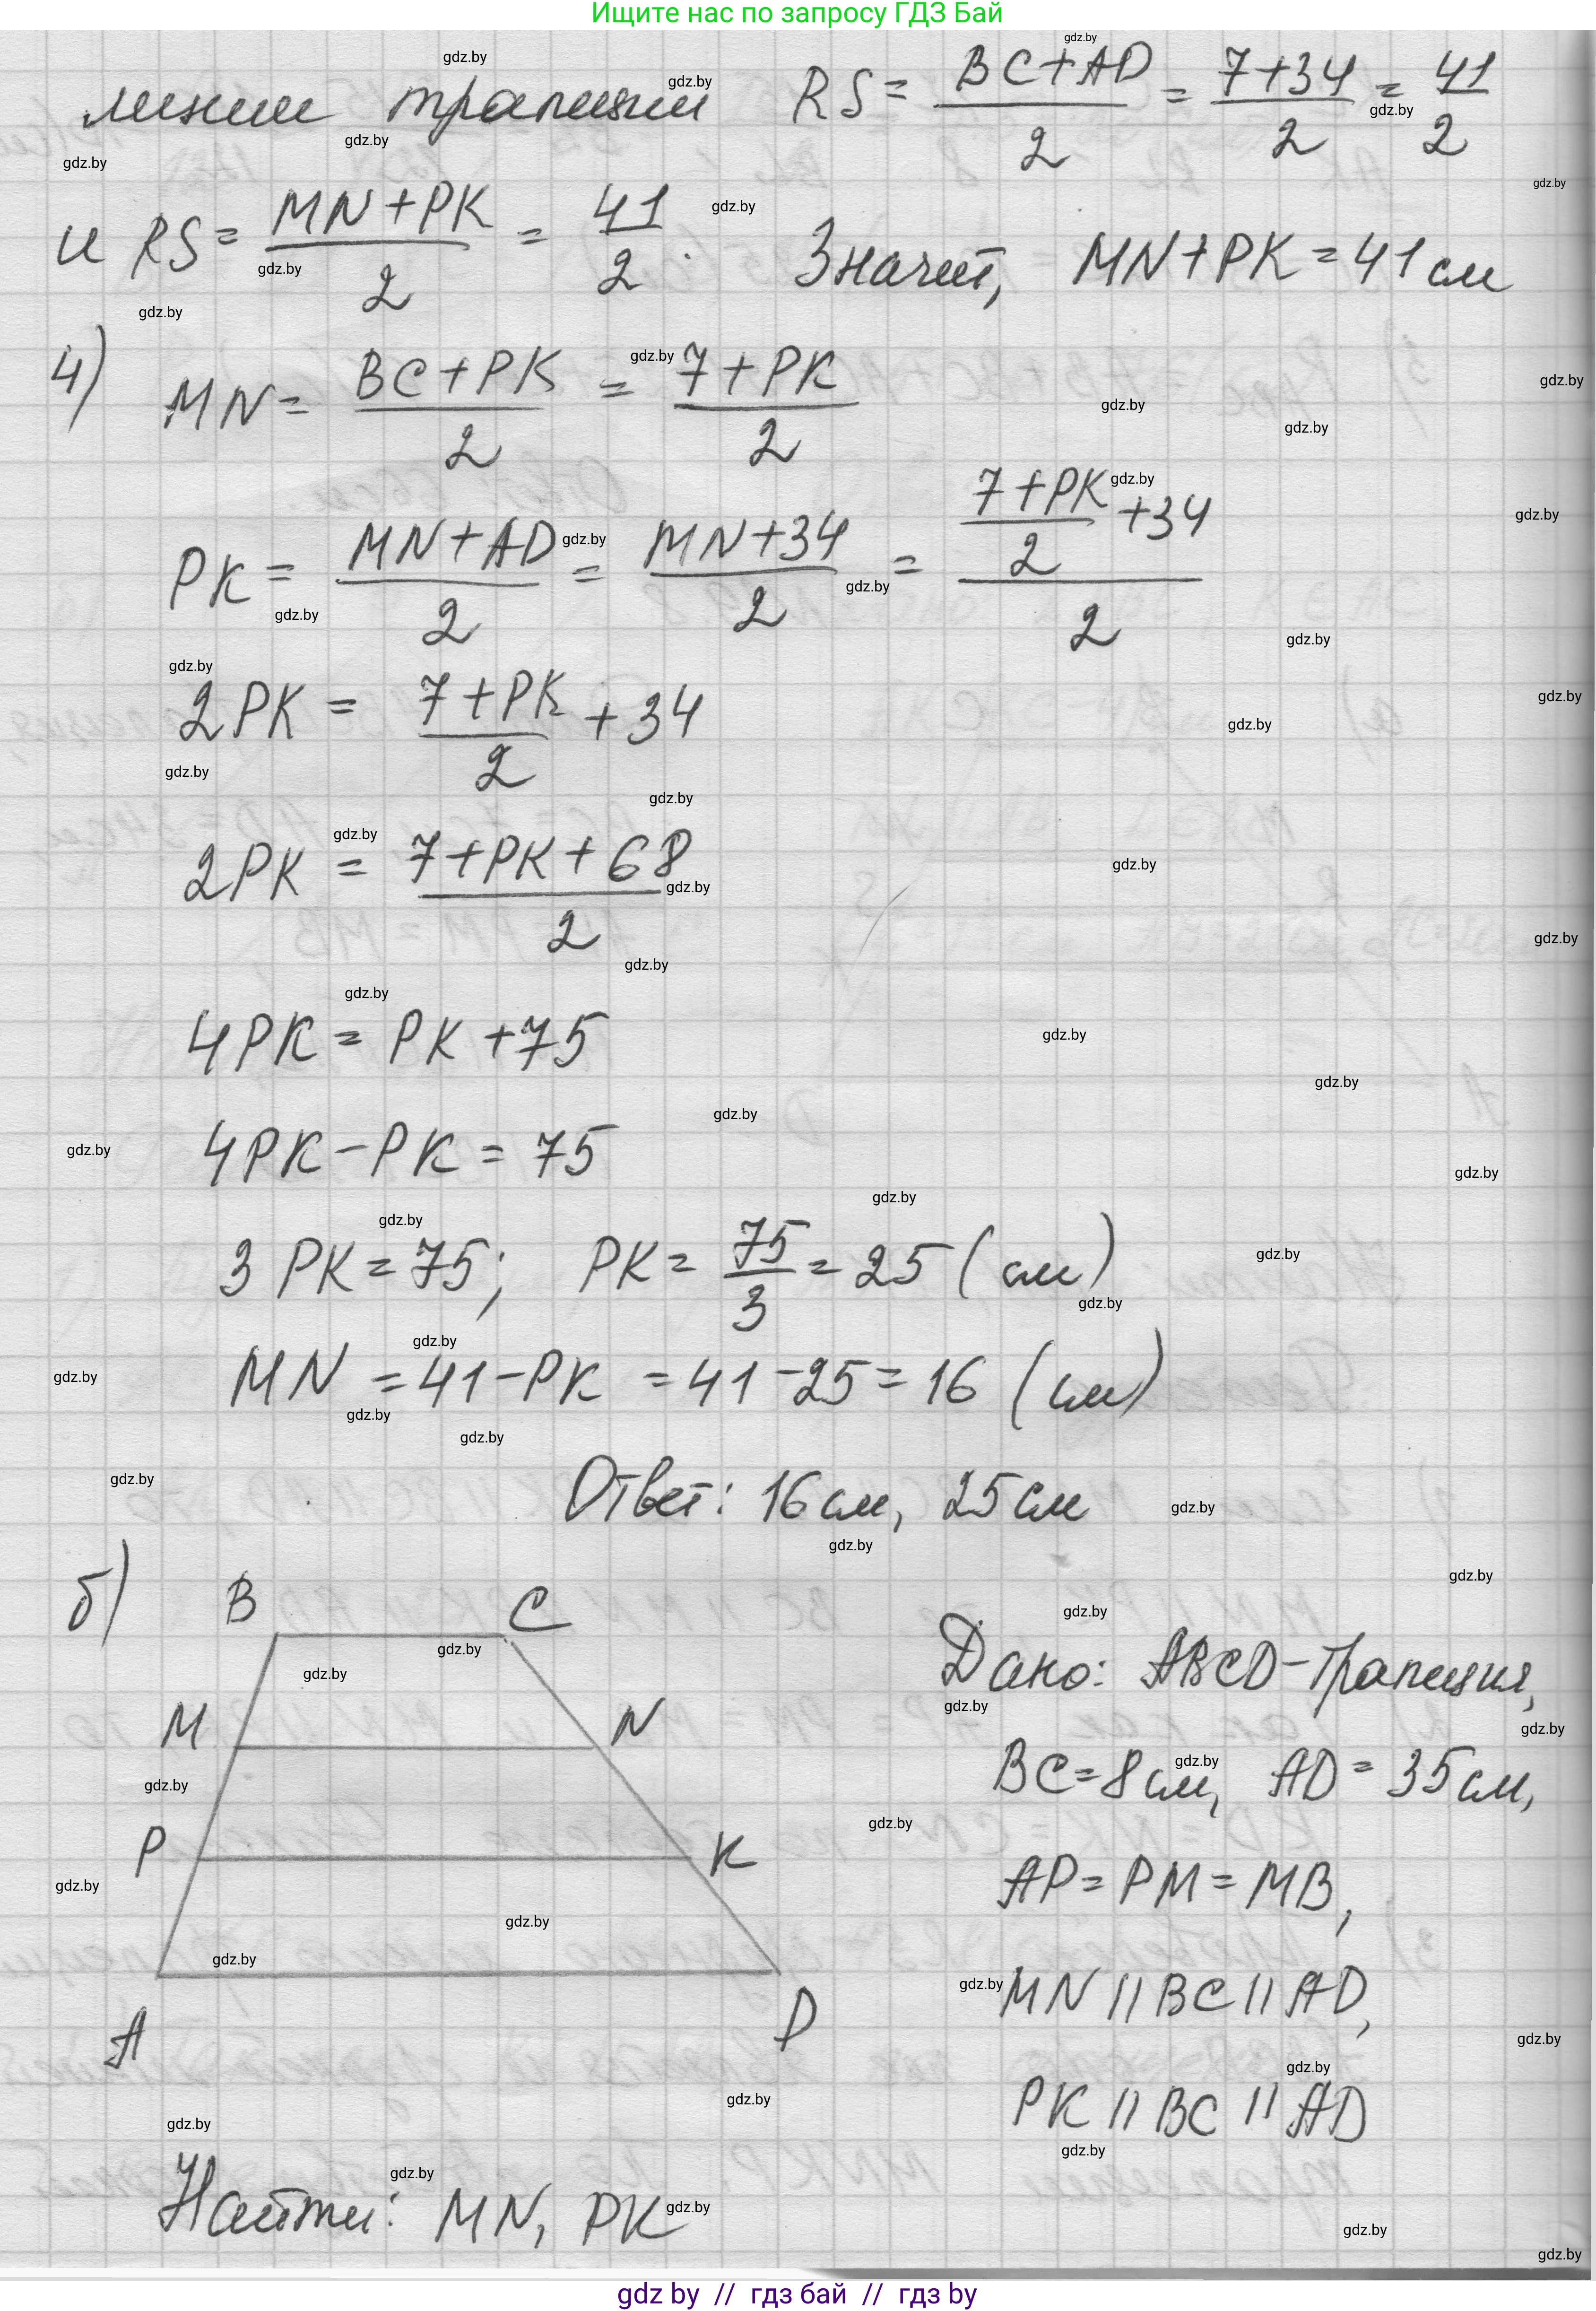 Ищите нас по запросу ГДЗ Бай
линии трапеции RS = (BC+AD)/2 = (7+34)/2 = 41/2
и RS = (MN+PK)/2 = 41/2. Значит, MN+PK = 41 см
4) MN = (BC+PK)/2 = (7+PK)/2
PK = (MN+AD)/2 = (MN+34)/2 = ((7+PK)/2 +34)/2
2PK = (7+PK)/2 + 34
2PK = (7+PK+68)/2
4PK = PK +75
4PK-PK = 75
3 PK = 75; PK = 75/3 = 25 (см)
MN = 41-PK = 41-25 = 16 (см)
Ответ: 16 см, 25 см
б) B C
M N
P K
A D
Дано: ABCD-трапеция,
BC=8 см, AD = 35 см,
AP = PM = MB,
MN || BC || AD,
PK || BC || AD
Найти: MN, PK
gdz.by
gdz by // гдз бай // гдз by